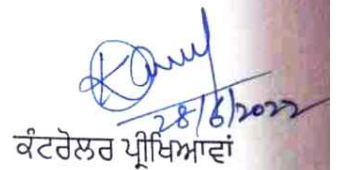 28/6/2022
ਕੰਟਰੋਲਰ ਪ੍ਰੀਖਿਆਵਾਂ